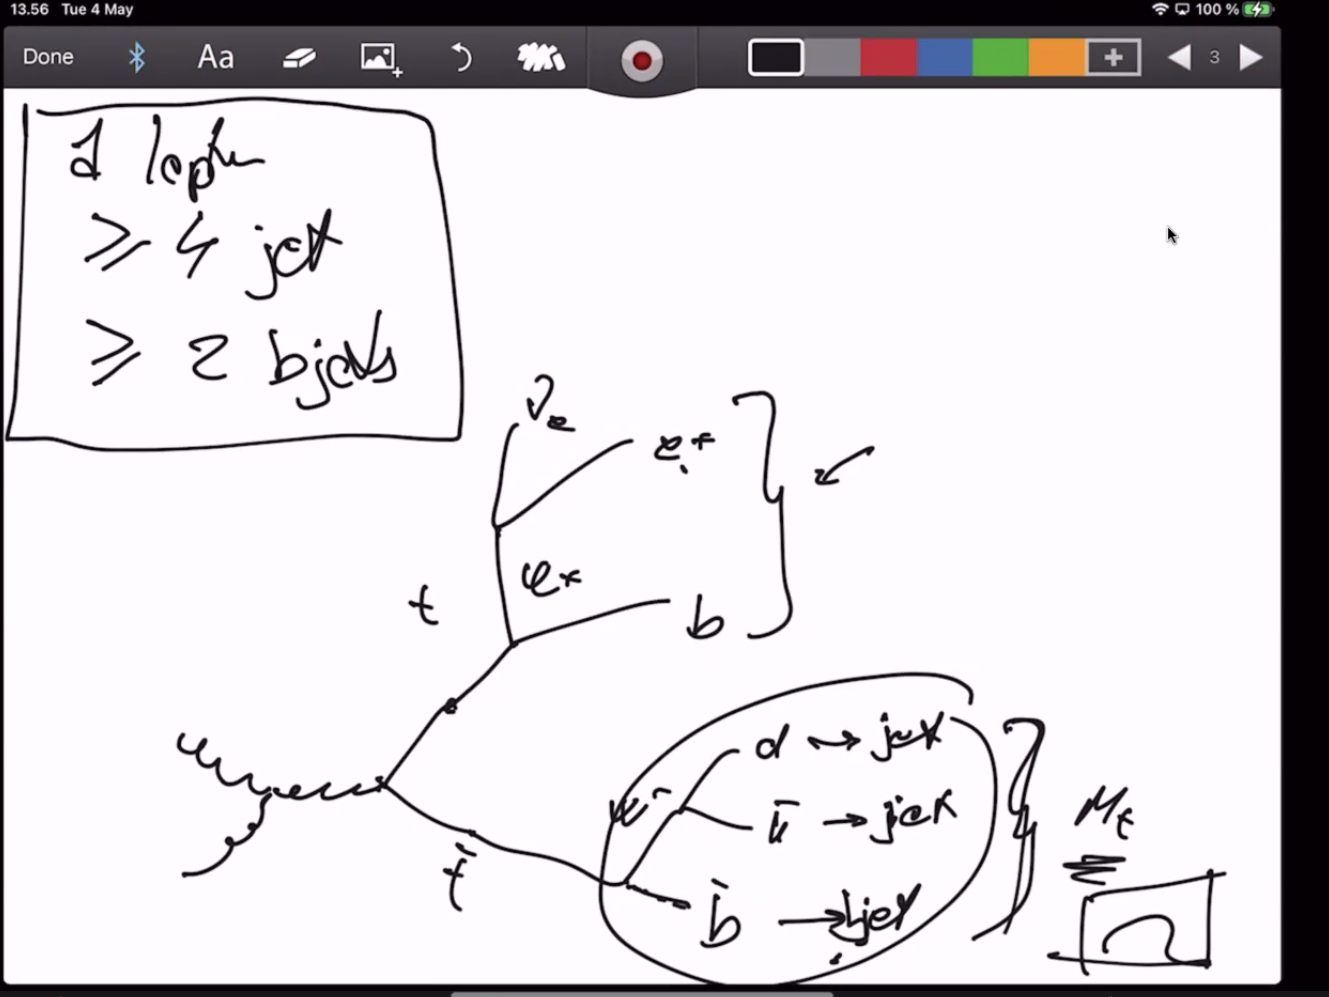 13.56 Tue 4 May
100 %
Done
Aa
3
1 lepton
≥ 4 jet
≥ 2 bjets
ν_e
e+
t
b
d → jet
W-
ū → jet
M_t
t̄
b̄ → bjet